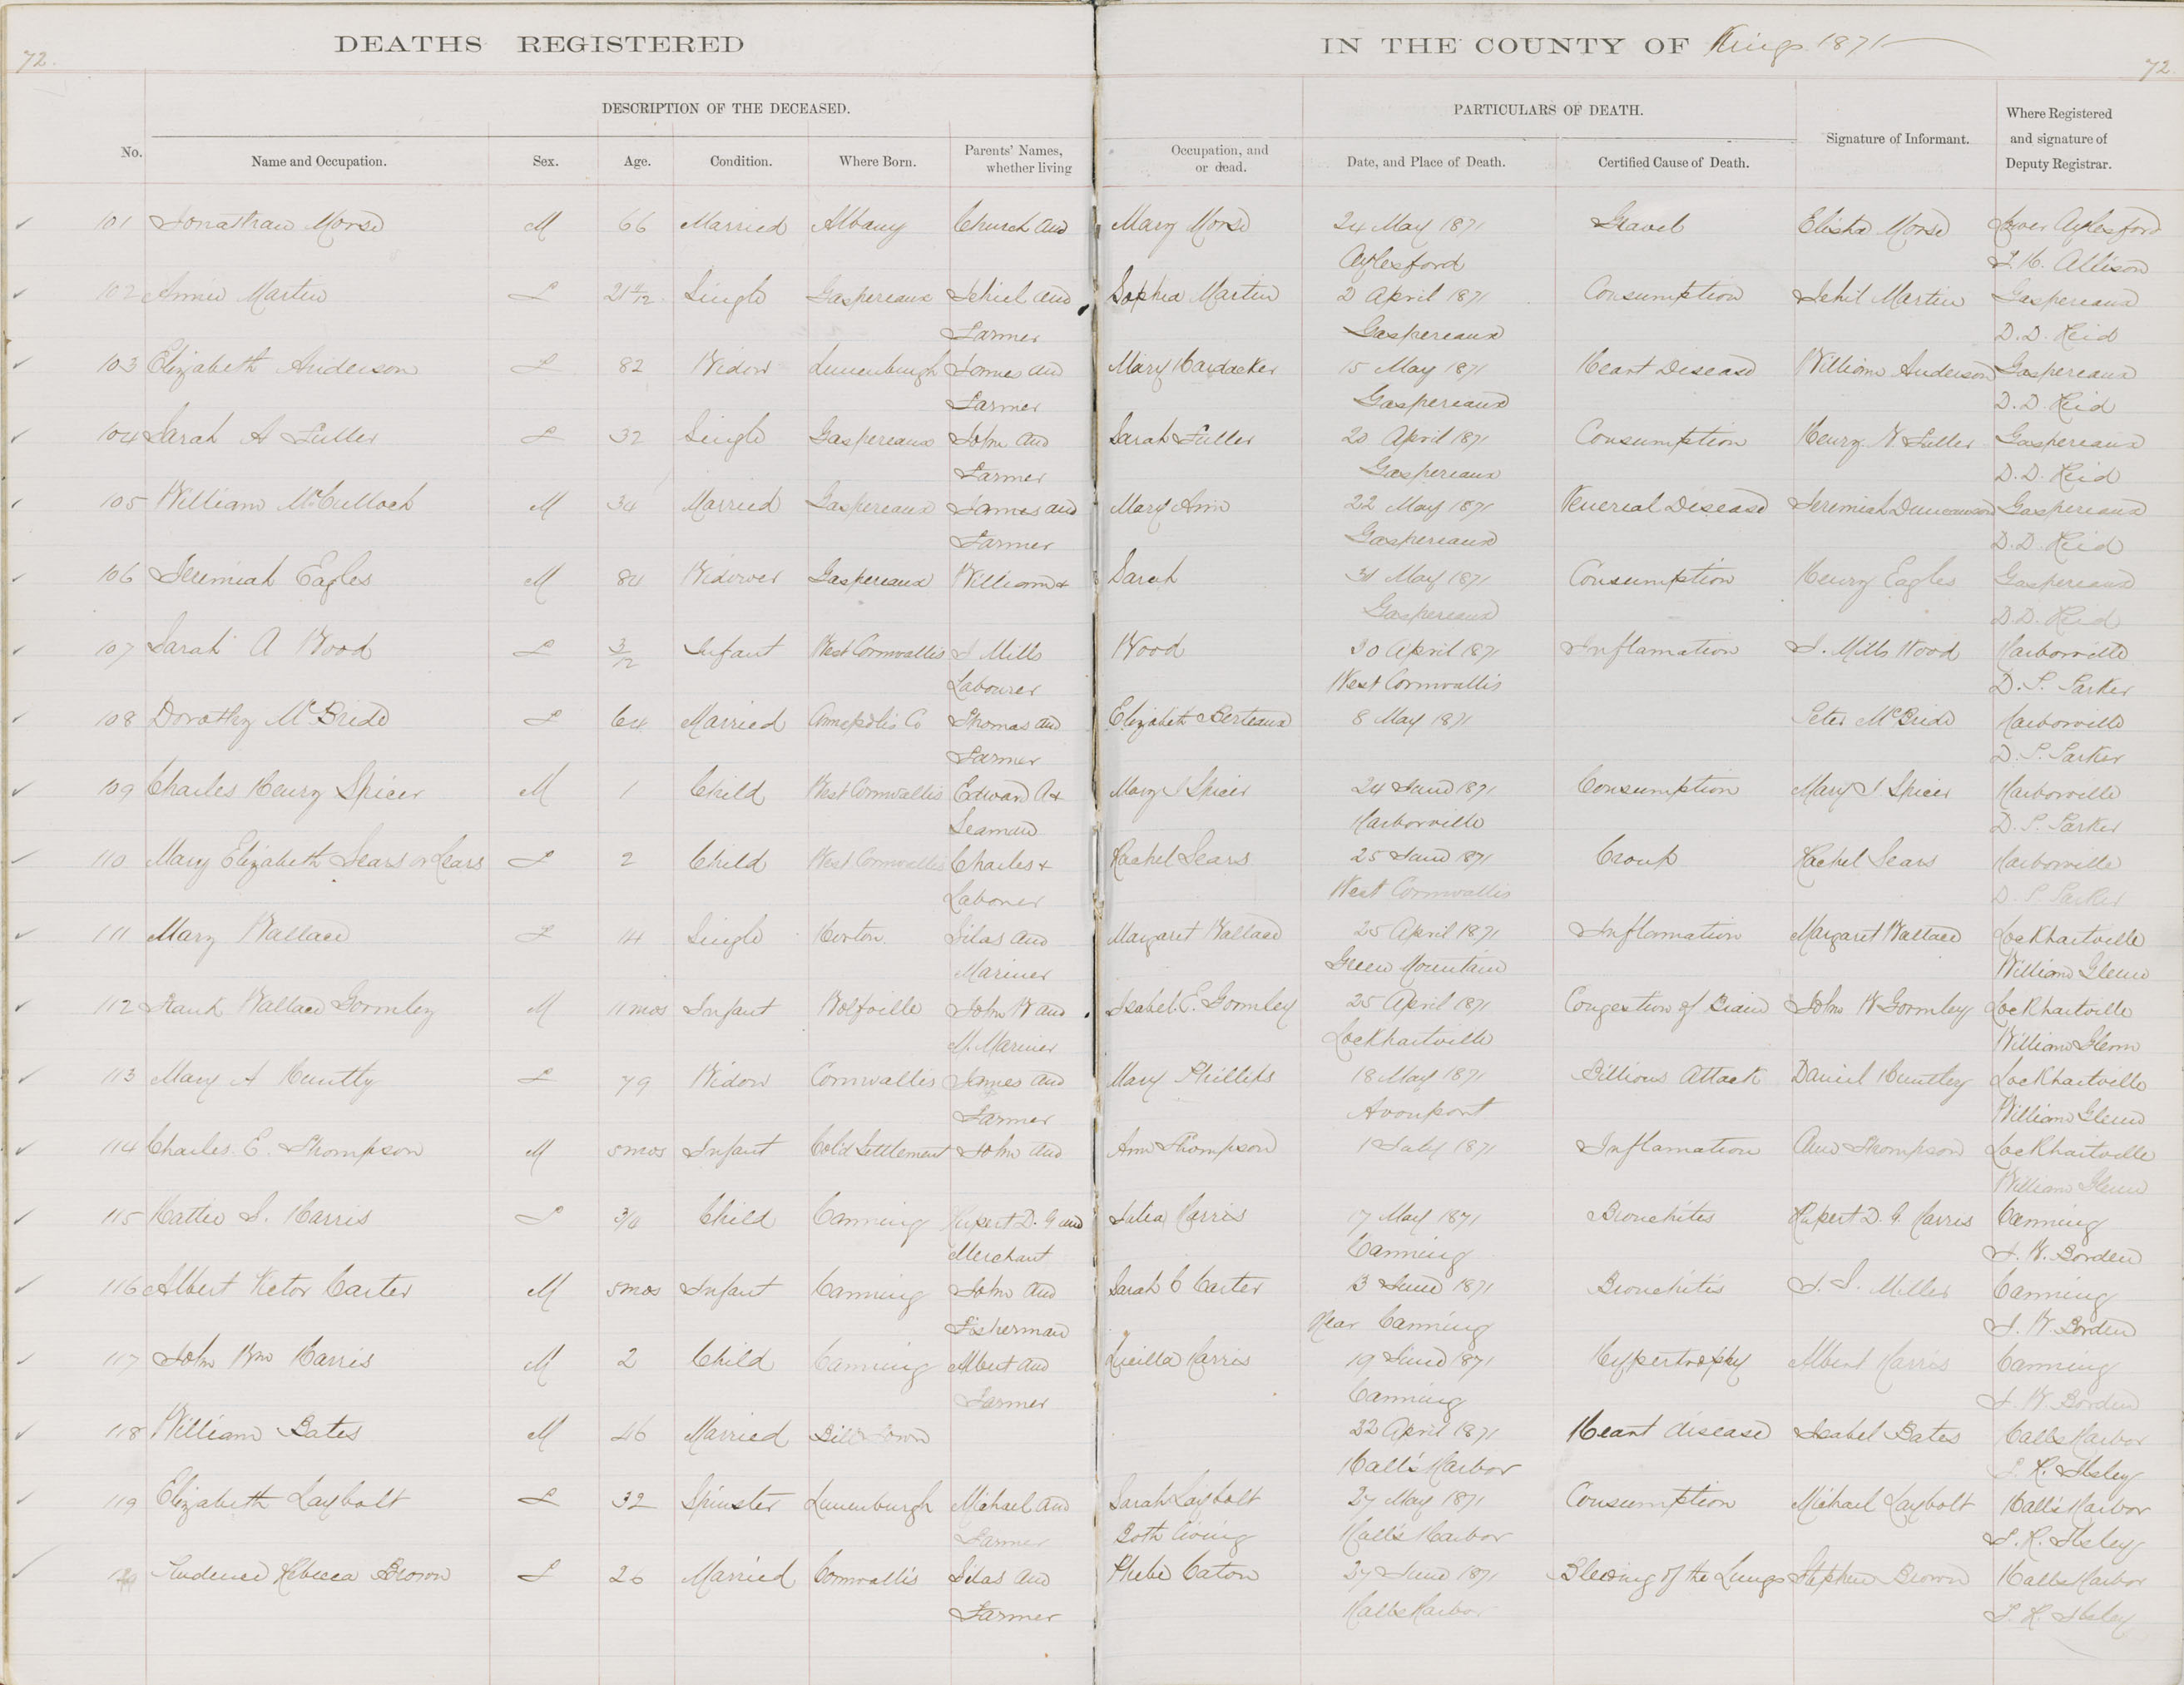 72.
DEATHS REGISTERED IN THE COUNTY OF Kings 1871
72.
DESCRIPTION OF THE DECEASED. PARTICULARS OF DEATH. Where Registered
and signature of
Deputy Registrar.
No. Name and Occupation. Sex. Age. Condition. Where Born. Parents' Names, whether living Occupation, and or dead. Date, and Place of Death. Certified Cause of Death. Signature of Informant.
101 Jonathan Morse M 66 Married Albany Church and Mary Morse 24 May 1871 Gravel Elisha Morse Lower Aylesford
Aylesford Allison
102 Annie Martin F 21 Single Gaspereaux Jehiel and Sophia Martin 2 April 1871 Consumption Jehil Martin Gaspereaux
Farmer Gaspereaux D. D. Reid
103 Elizabeth Anderson F 82 Widow Lunenburgh James and Mary Hardacker 15 May 1871 Heart Disease William Anderson Gaspereaux
Farmer Gaspereaux D. D. Reid
104 Sarah A Fuller F 32 Single Gaspereaux John and Sarah Fuller 20 April 1871 Consumption Henry N Fuller Gaspereaux
Farmer Gaspereaux D. D. Reid
105 William McCulloch M 34 Married Gaspereaux James and Mary Ann 22 May 1871 Venereal Disease Jeremiah Duncanson Gaspereaux
Farmer Gaspereaux D. D. Reid
106 Jeremiah Eagles M 84 Widower Gaspereaux William & Sarah 31 May 1871 Consumption Henry Eagles Gaspereaux
Gaspereaux D. D. Reid
107 Sarah A Wood F 3/12 Infant West Cornwallis J Mills Wood 30 April 1871 Inflamation J. Mills Wood Harborville
Labourer West Cornwallis D. P. Parker
108 Dorothy McBride F 64 Married Annapolis Co Thomas and Elizabeth Berteaux 8 May 1871 Peter McBride Harborville
Farmer D. P. Parker
109 Charles Henry Spicer M 1 Child West Cornwallis Edward A & Mary J Spicer 24 June 1871 Consumption Mary J Spicer Harborville
Seaman Harborville D. P. Parker
110 Mary Elizabeth Sears or Lears F 2 Child West Cornwallis Charles & Rachel Sears 25 June 1871 Croup Rachel Sears Harborville
Laborer West Cornwallis D. P Parker
111 Mary Wallace F 14 Single Horton Silas and Margaret Wallace 25 April 1871 Inflamation Margaret Wallace Lockhartville
Mariner Green Mountain William Glenn
112 Frank Wallace Gormley M 11 mos Infant Wolfville John W and Isabel E. Gormley 25 April 1871 Congestion of Brain John W Gormley Lockhartville
M. Mariner Lockhartville William Glenn
113 Mary A Huntly F 79 Widow Cornwallis James and Mary Phillips 18 May 1871 Billious Attack Daniel Huntley Lockhartville
Farmer Avonport William Glenn
114 Charles E. Thompson M 5 mos Infant Col'd Settlement John and Ann Thompson 1 July 1871 Inflamation Ann Thompson Lockhartville
William Glenn
115 Hattie S. Harris F 3/4 Child Canning Rupert D. G and Julia Harris 17 May 1871 Bronchites Rupert D. G. Harris Canning
Merchant Canning J. W. Borden
116 Albert Victor Carter M 5 mos Infant Canning John and Sarah C Carter 3 June 1871 Bronchitis Miller Canning
Fisherman Near Canning J. W Borden
117 John Wm Harris M 2 Child Canning Albert and Lucilla Harris 19 June 1871 Hypertrophy Albert Harris Canning
Farmer Canning J. W Borden
118 William Bates M 46 Married Bill Town 22 April 1871 Heart disease Isabel Bates Halls Harbor
Hall's Harbor Ilsley
119 Elizabeth Laybolt F 32 Spinster Lunenburgh Michael and Sarah Laybolt 27 May 1871 Consumption Michael Laybolt Hall's Harbor
Farmer Both living Hall's Harbor Ilsley
120 Prudence Rebecca Brown F 26 Married Cornwallis Silas and Phebe Eaton 27 June 1871 Bleeding of the Lungs Stephen Brown Halls Harbor
Farmer Halls Harbor Ilsley